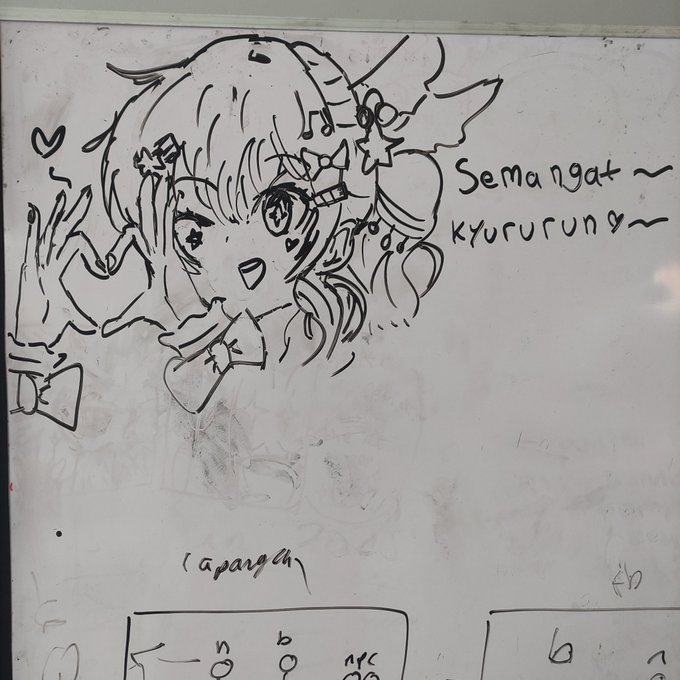 Semangat ~
Kyururun♡~
Lapangan
n b npc
b n